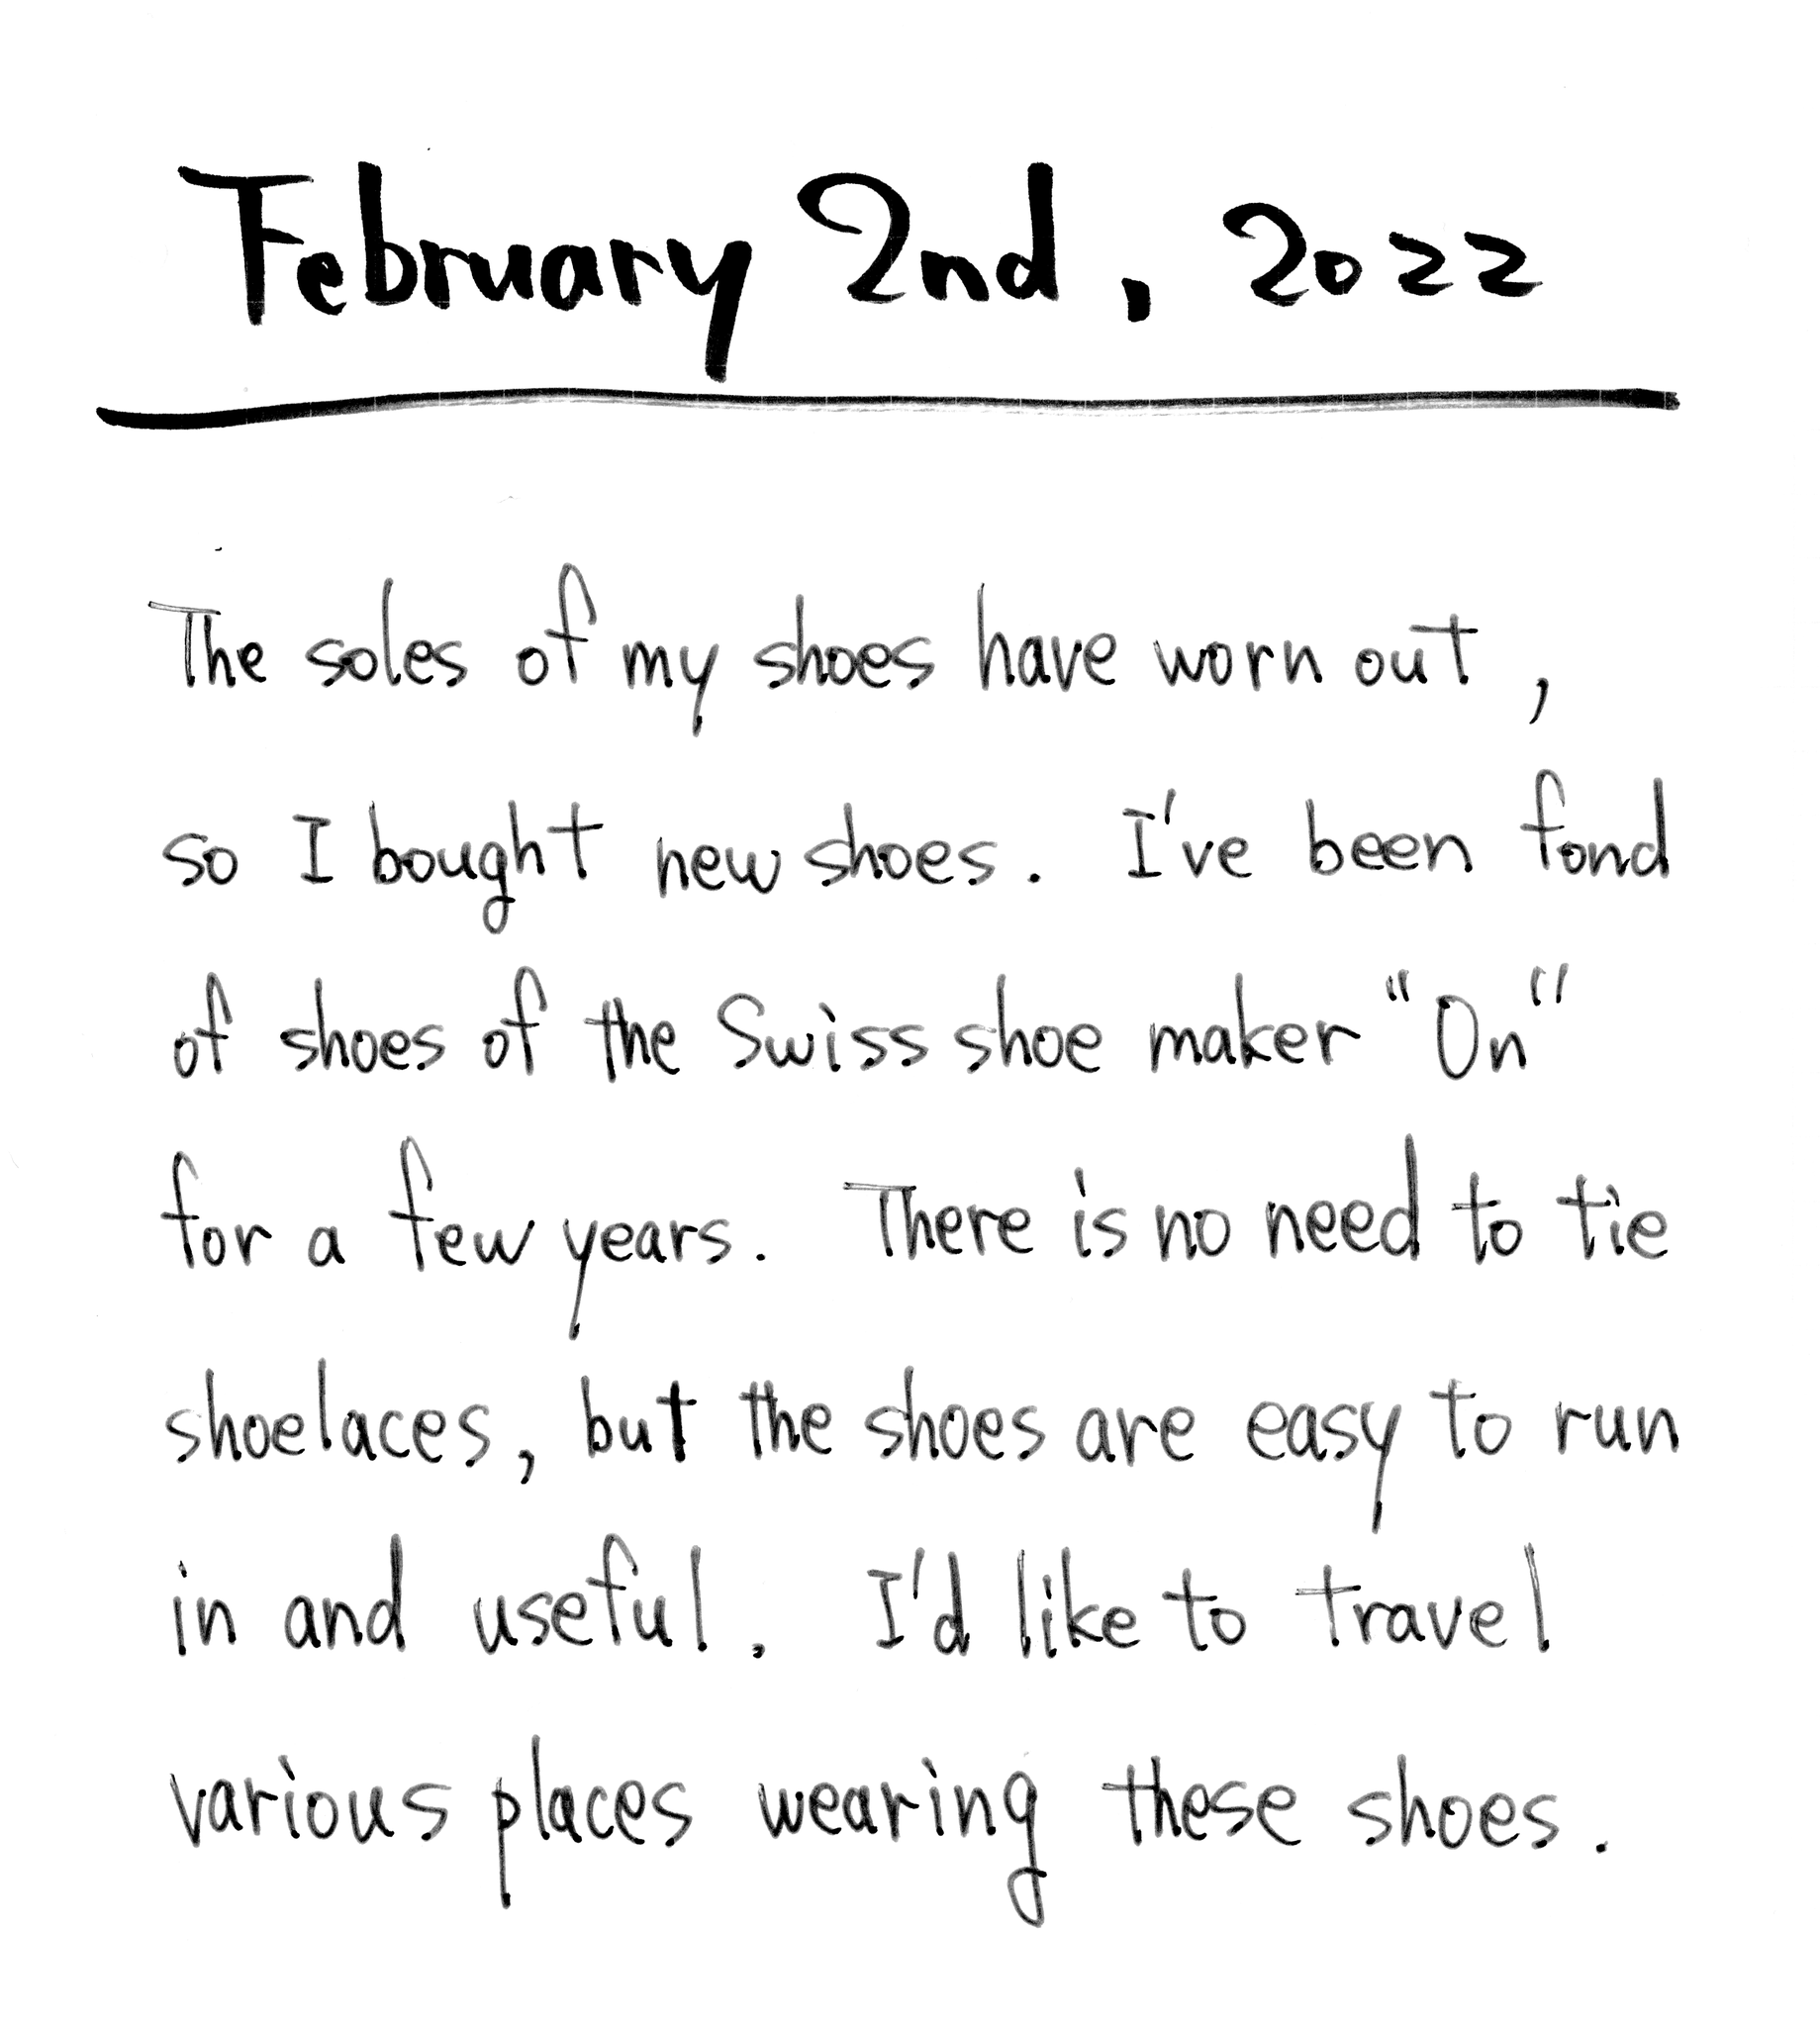 February 2nd, 2022
The soles of my shoes have worn out,
so I bought new shoes. I've been fond
of shoes of the Swiss shoe maker "On"
for a few years. There is no need to tie
shoelaces, but the shoes are easy to run
in and useful. I'd like to travel
various places wearing these shoes.